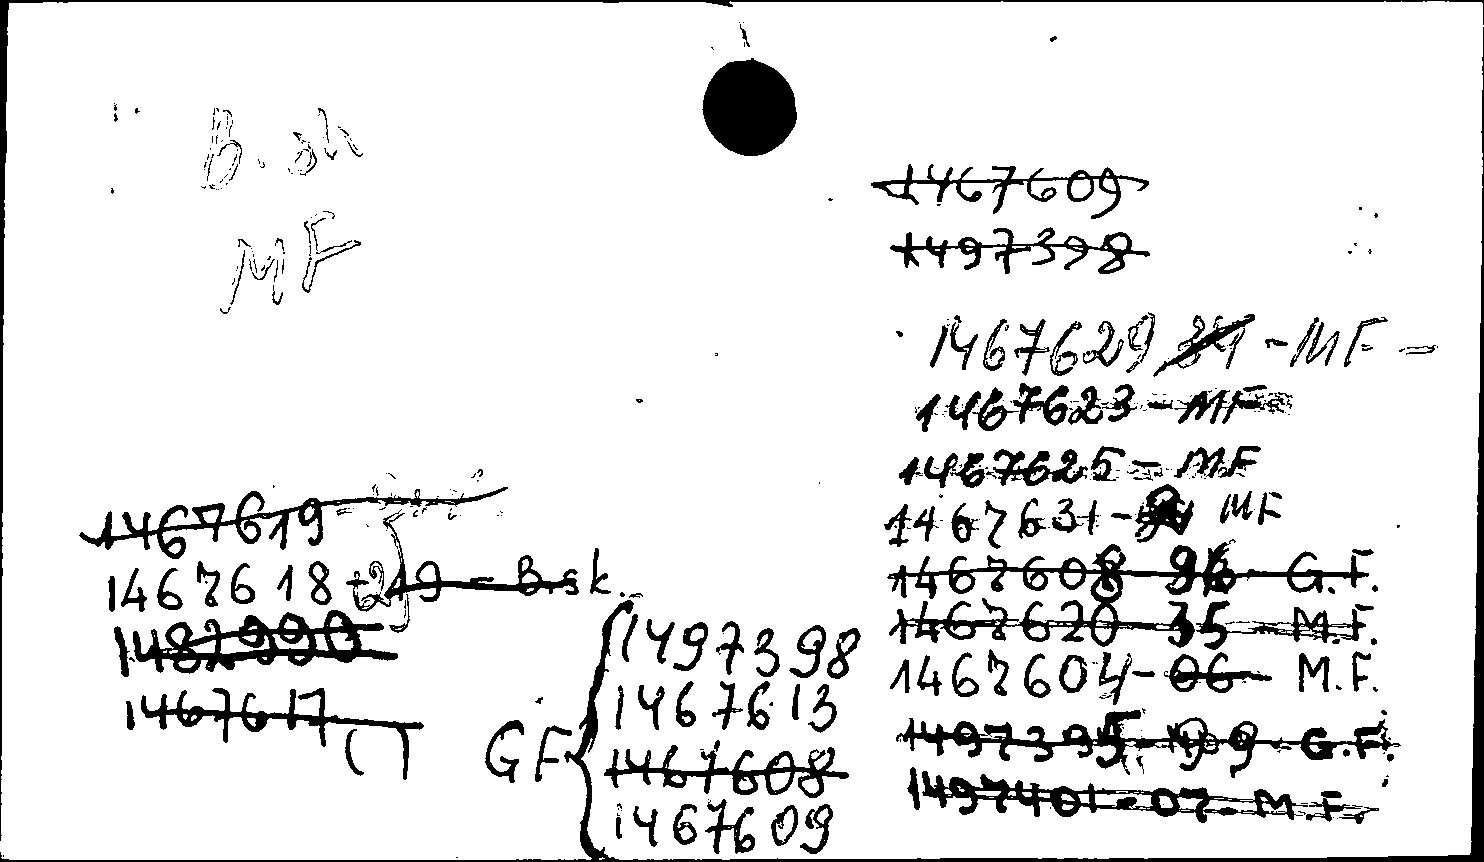 B. sh
MF
1467609
1497398
1467629 31 - MF -
1467623 - MF
1467625 - MF
1467631 - MF
1467608 - 96 - G.F.
1467620 - 35 - M.F.
1467604 - 06 - M.F.
1497395 - 99 - G.F.
1497401 - 07 - M.F.
1467619 -
1467618 + 219 - B.sk.
1482990
1467617
( )
GF {
1497398
1467613
1467608
1467609